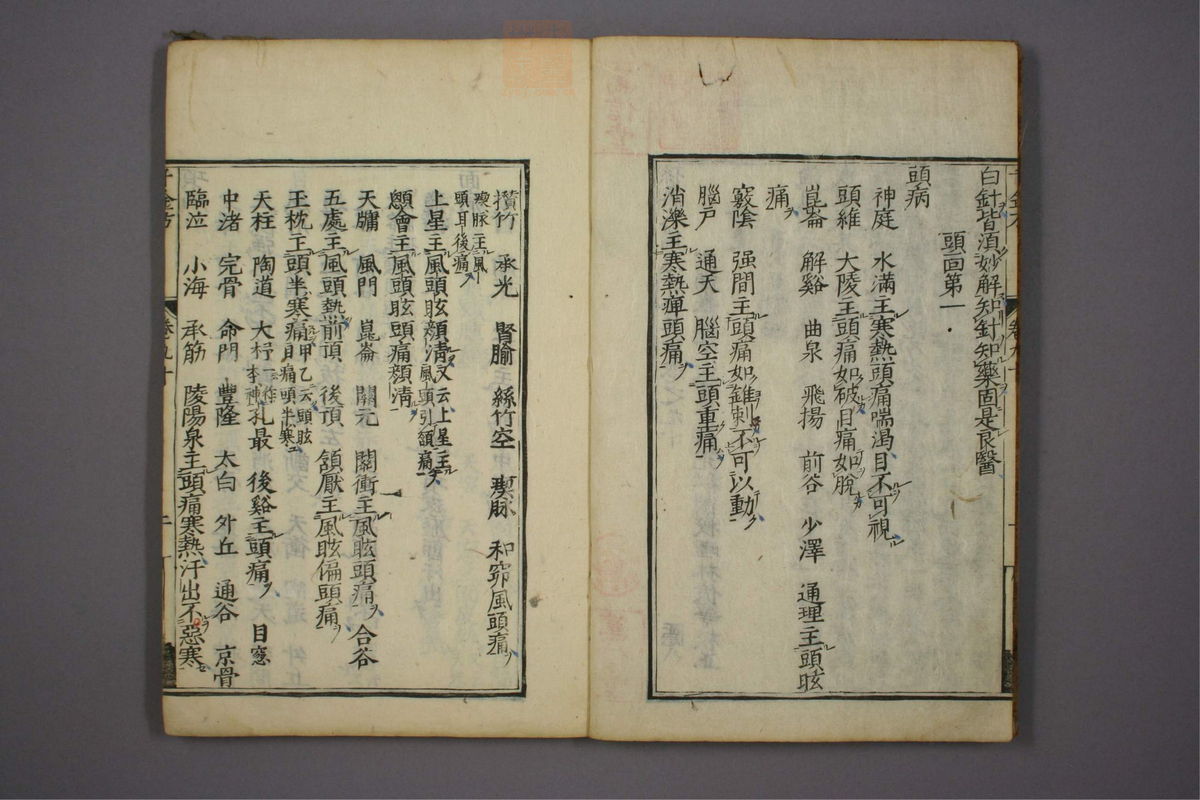 白針皆須妙解知針知藥固是良醫
頭面第一
頭病
神庭 水滿主寒熱頭痛喘渴目不可視
頭維 大陵主頭痛如破目痛如脫
崑崙 解谿 曲泉 飛揚 前谷 少澤 通理主頭眩
痛
竅陰 强間主頭痛如錐刺不可以動
腦戶 通天 腦空主頭重痛
消濼主寒熱痺頭痛
攢竹 承光 腎腧 絲竹空 瘈脉 和窌風頭痛
瘈脉主風頭耳後痛
上星主風頭眩顏清又云上星主風頭引頷痛
顖會主風頭眩頭痛顏清
天牖 風門 崑崙 關元 關衝主風眩頭痛 合谷
五處主風頭熱前頂 後頂 頷厭主風眩偏頭痛
玉枕主頭半寒痛甲乙云頭眩目痛頭半寒
天柱 陶道 大杼一作本神孔最 後谿主頭痛 目窓
中渚 完骨 命門 豐隆 太白 外丘 通谷 京骨
臨泣 小海 承筋 陵陽泉主頭痛寒熱汗出不惡寒
千金方